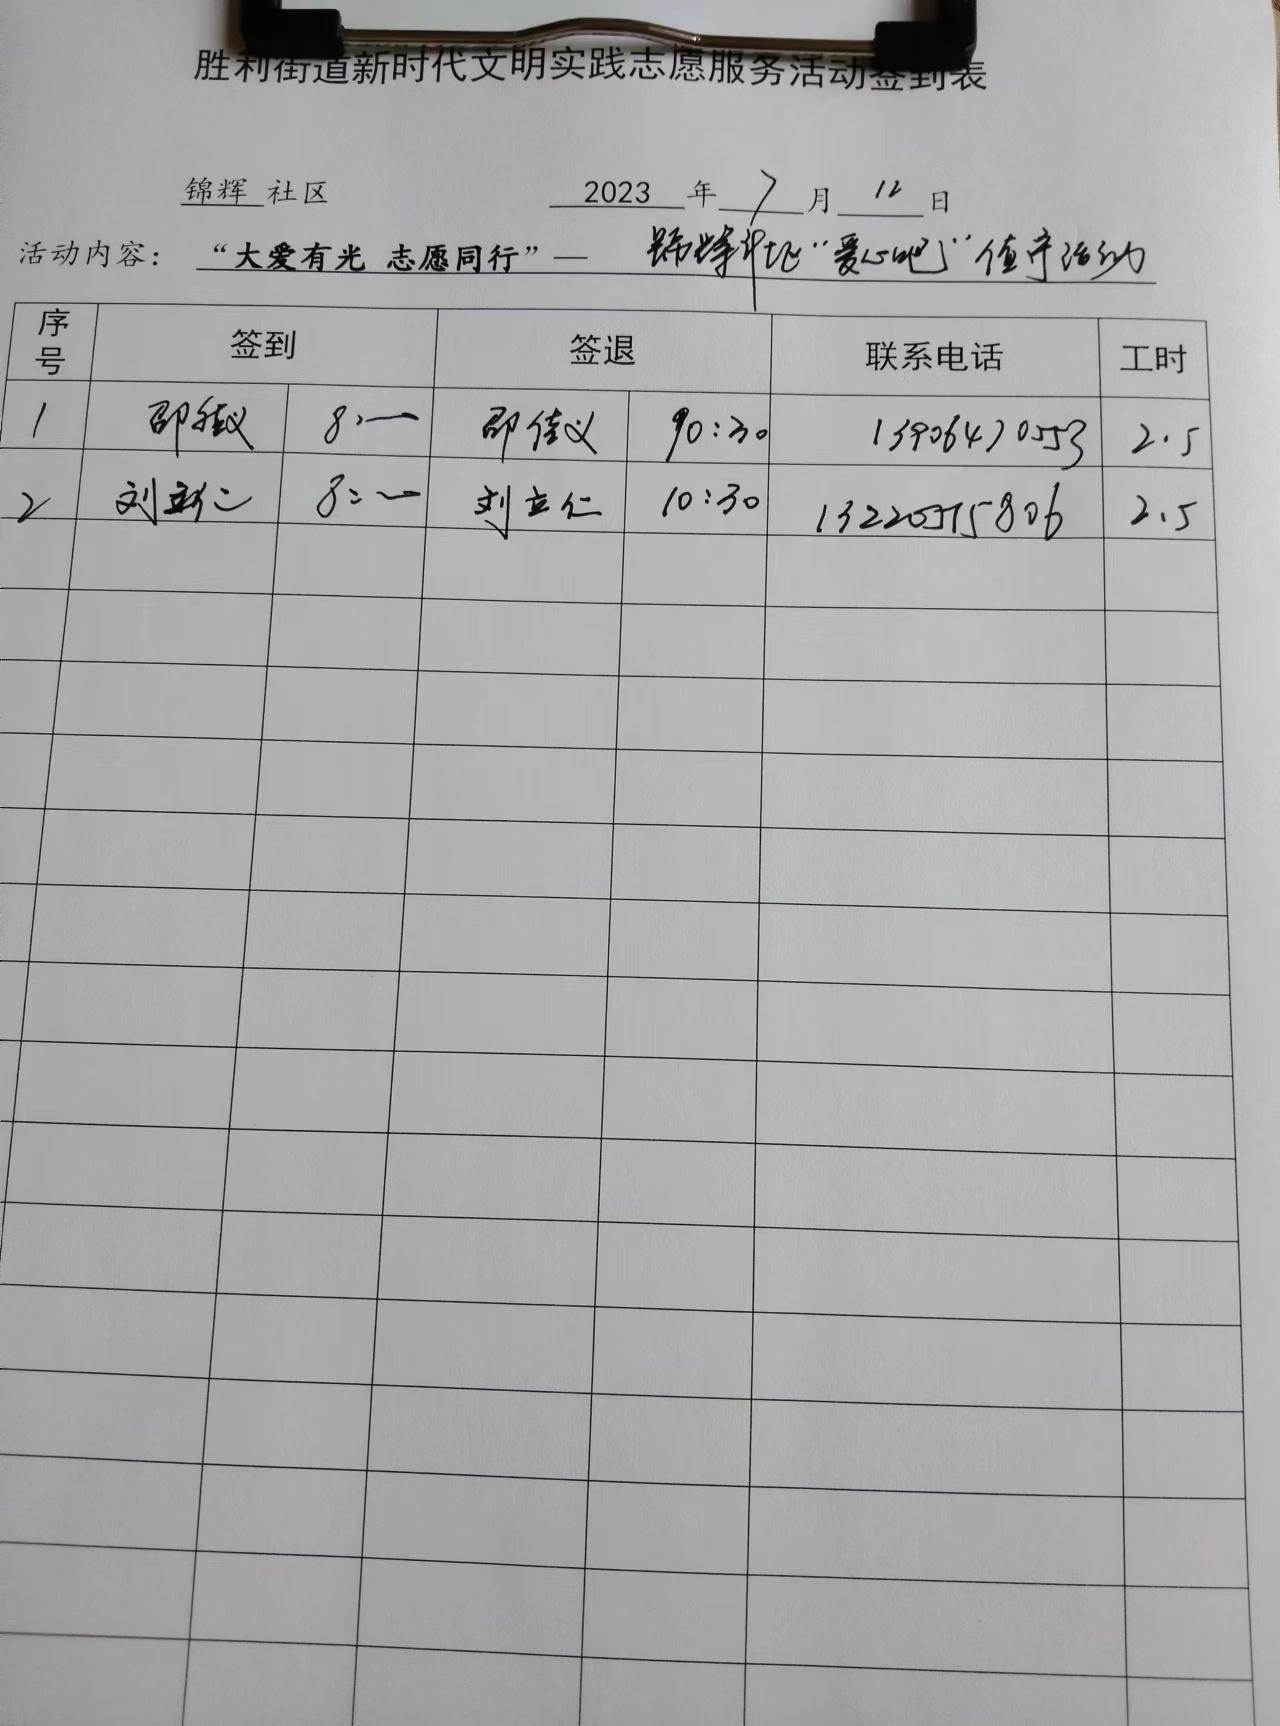 胜利街道新时代文明实践志愿服务活动签到表
锦辉 社区 2023 年 7 月 12 日
活动内容： “大爱有光 志愿同行”— “爱心吧” 值守活动
序号 签到 签退 联系电话 工时
1 邵佳义 8:一 邵佳义 10:30 13906470553 2.5
2 刘立仁 8:一 刘立仁 10:30 13220515806 2.5